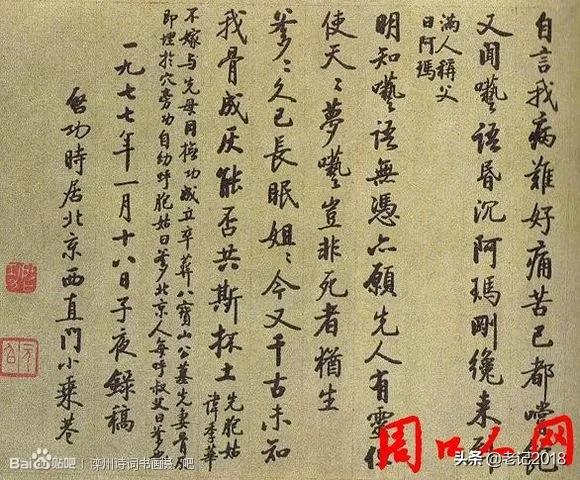 自言我病難好痛苦已都嚐
又闻囈語昏沉阿瑪剛纔来
滿人稱父
曰阿瑪
明知囈語無憑亦願先人有靈但
使天〻夢囈豈非死者猶生
爹〻久已長眠姐〻今又千古未知
我骨成灰能否共斯抔土
先胞姑
諱季華
不嫁与先母同撫功成立卒葬八寶山公墓先妻骨灰
即埋於穴旁功自幼呼胞姑曰爹〻北京人每呼叔父曰爹也
一九七七年一月十八日子夜錄稿
啟功時居北京西直門小乘巷
周口人网
Bai du贴吧 | 滦州诗词书画摄影吧
头条 @老记2018